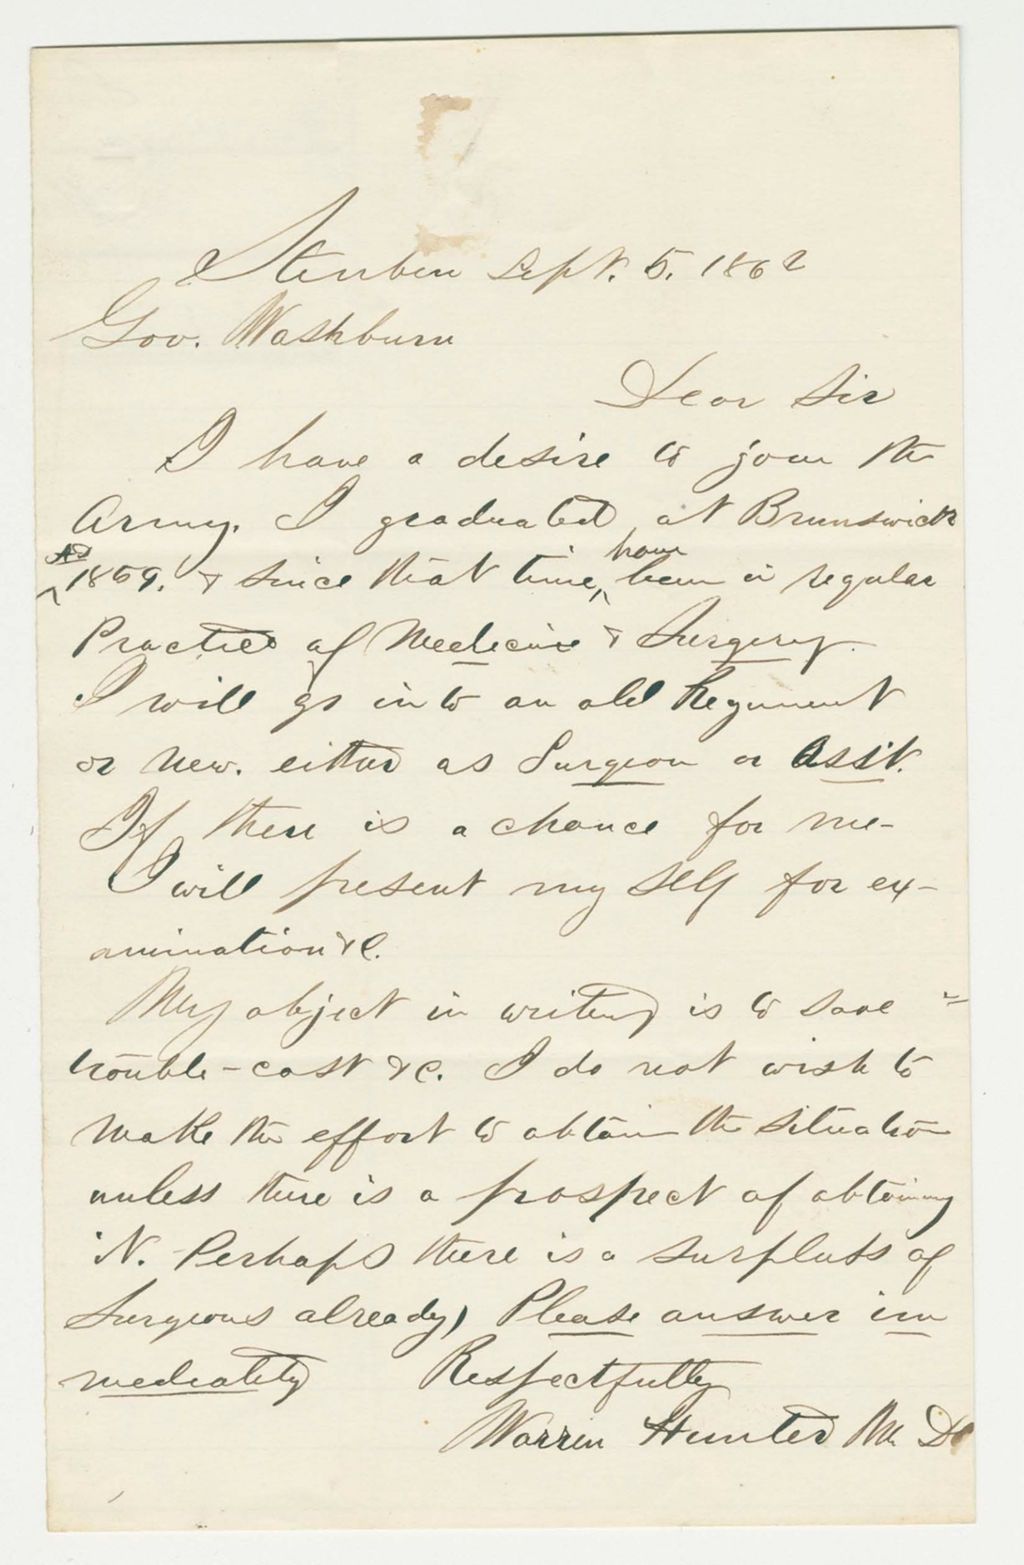 Steuben Sept. 5. 1862
Gov. Washburn
Dear Sir
I have a desire to join the
Army. I graduated, at Brunswick
AD 1859. & since that time, have been in regular
Practice of Medicine & Surgery.
I will go into an old Regiment
or New. either as Surgeon or Asst.
If there is a chance for me-
I will present my self for ex-
amination &C.
My object in writing is to save
trouble-cost &C. I do not wish to
make the effort to obtain the situation
unless there is a prospect of obtaining
it. Perhaps there is a surpluss of
Surgeons already, Please answer im
mediately Respectfully
Warren Hunter M D